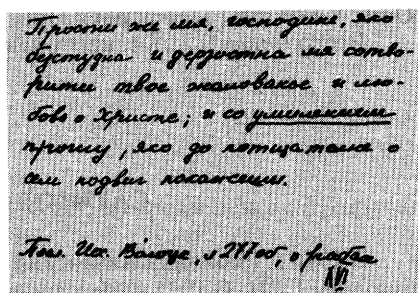 Прости же мя, господине, яко
безстудна и дерзостна мя сотво-
рити твое жалование и лю-
бовь о Христе; и со умилением
прошу, яко до потщателно о
сем подвиг покажеши.
Посл. Ио. Волоцк., л 277 об, о рабех
XVI